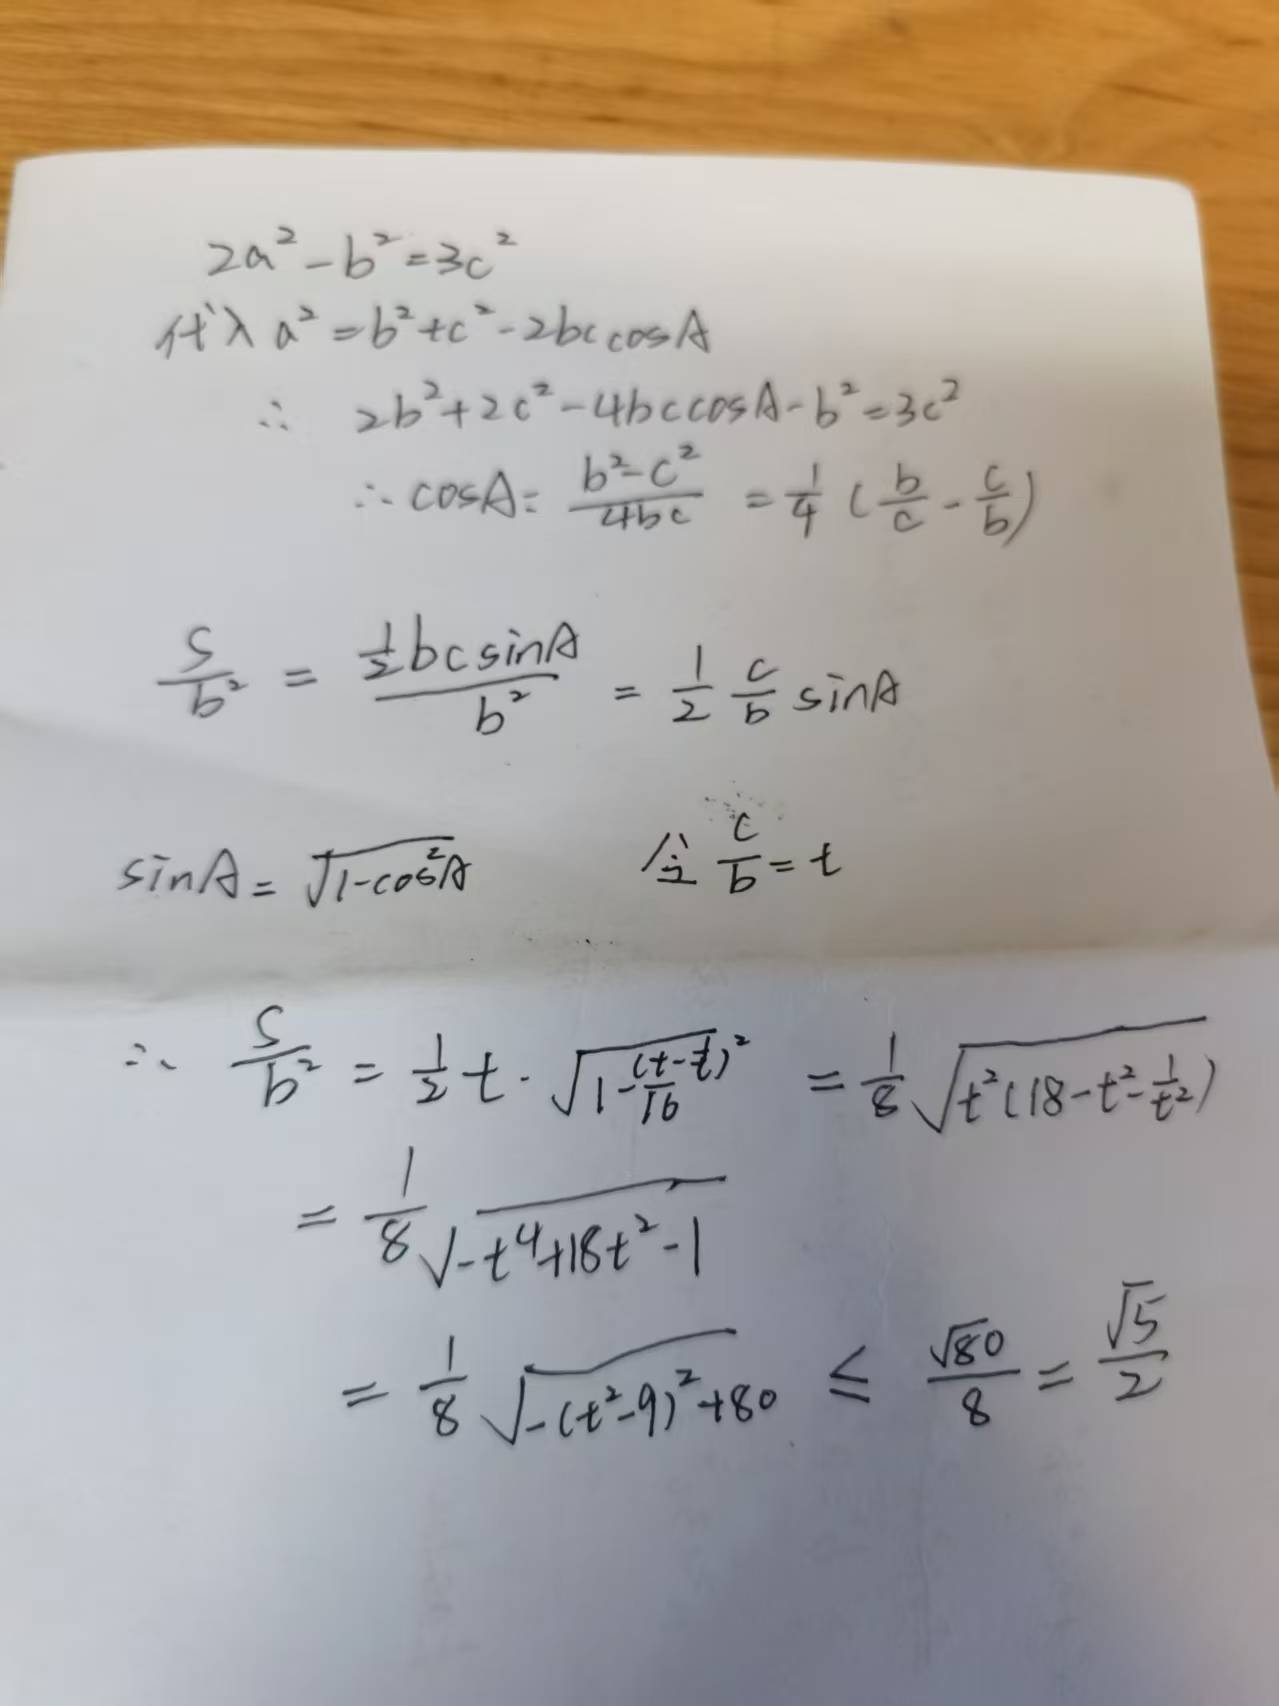 2a² - b² = 3c²
代入 a² = b² + c² - 2bc cosA
∴ 2b² + 2c² - 4bc cosA - b² = 3c²
∴ cosA = (b² - c²)/(4bc) = 1/4 (b/c - c/b)
S/b² = (½bc sinA)/b² = 1/2 c/b sinA
sinA = √(1 - cos²A) 令 c/b = t
∴ S/b² = 1/2 t · √(1 - (t - 1/t)²/16) = 1/8 √(t²(18 - t² - 1/t²))
= 1/8 √(-t⁴ + 18t² - 1)
= 1/8 √(-(t² - 9)² + 80) ≤ √80/8 = √5/2